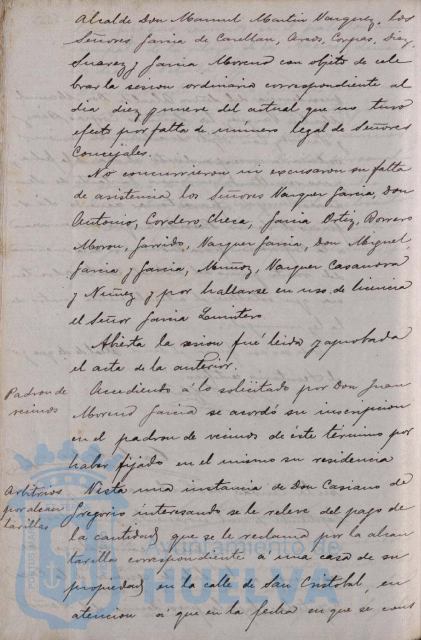 Alcalde Don Manuel Martin Vazquez, los
Señores Garcia de Castellan, Arcos, Corpas, Diaz,
Suarez y Garcia Moreno con objeto de cele
brar la sesion ordinaria correspondiente al
dia diez y nueve del actual que no tuvo
efecto por falta de número legal de Señores
Concejales.
No concurrieron ni excusaron su falta
de asistencia los Señores Vazquez Garcia, Don
Antonio, Cordero, Checa, Garcia Ortiz, Borrero
Moron, Garrido, Vazquez Garcia, Don Miguel,
Garcia y Garcia, Muñoz, Vazquez Casanova
y Nuñez y por hallarse en uso de licencia
el Señor Garcia Quintero
Abierta la sesion fué leida y aprobada
el acta de la anterior.
Padron de
vecinos
Accediendo á lo solicitado por Don Juan
Moreno Garcia se acordó su inscripcion
en el padron de vecinos de éste término por
haber fijado en el mismo su residencia
Arbitrios
por alcan
tarillas
Vista una instancia de Don Casiano de
Gregorio interesando se le releve del pago de
la cantidad que se le reclama por la alcan
tarilla correspondiente á una casa de su
propiedad en la calle de San Cristobal, en
atencion á que en la fecha en que se cons
Ayuntamiento de
HUELVA